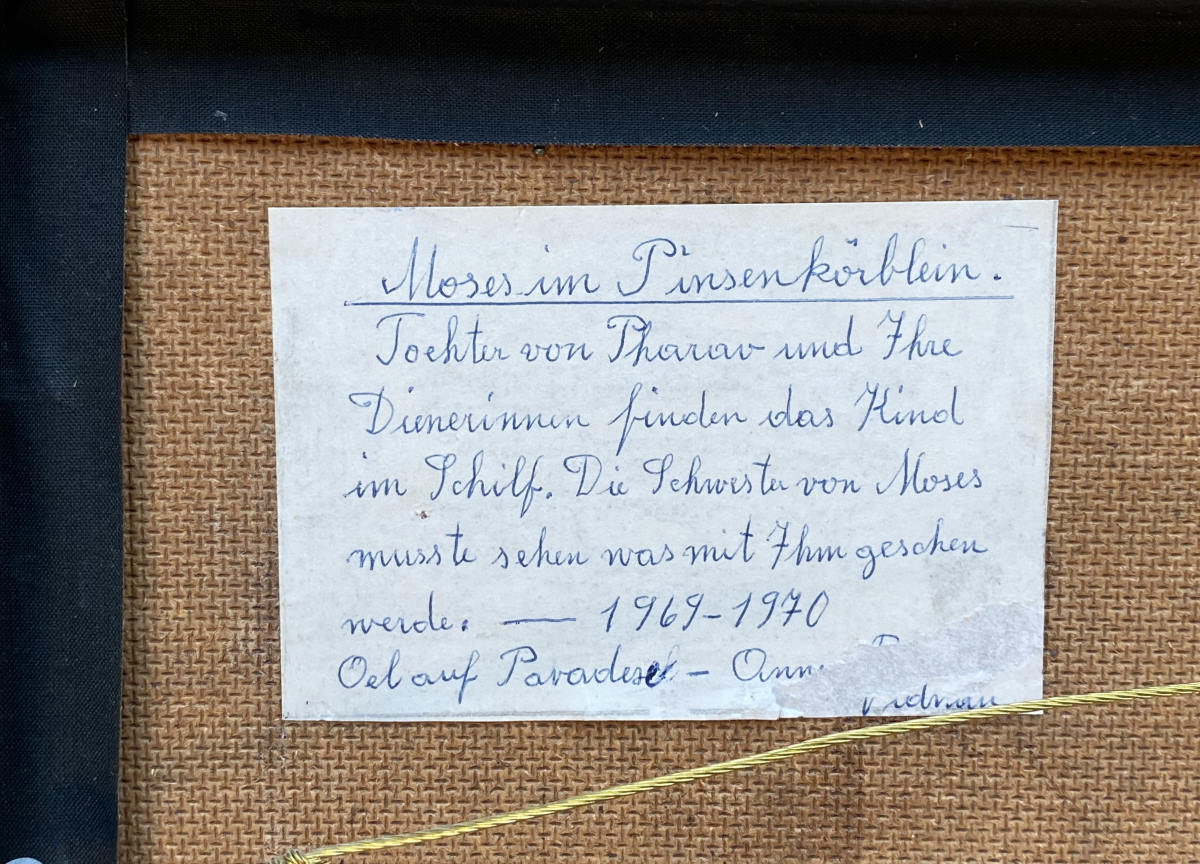 Moses im Pinsenkörblein.
Tochter von Pharao und Ihre
Dienerinnen finden das Kind
im Schilf. Die Schwester von Moses
musste sehen was mit Ihm geschen
werde. — 1969-1970
Oel auf Pavadese -